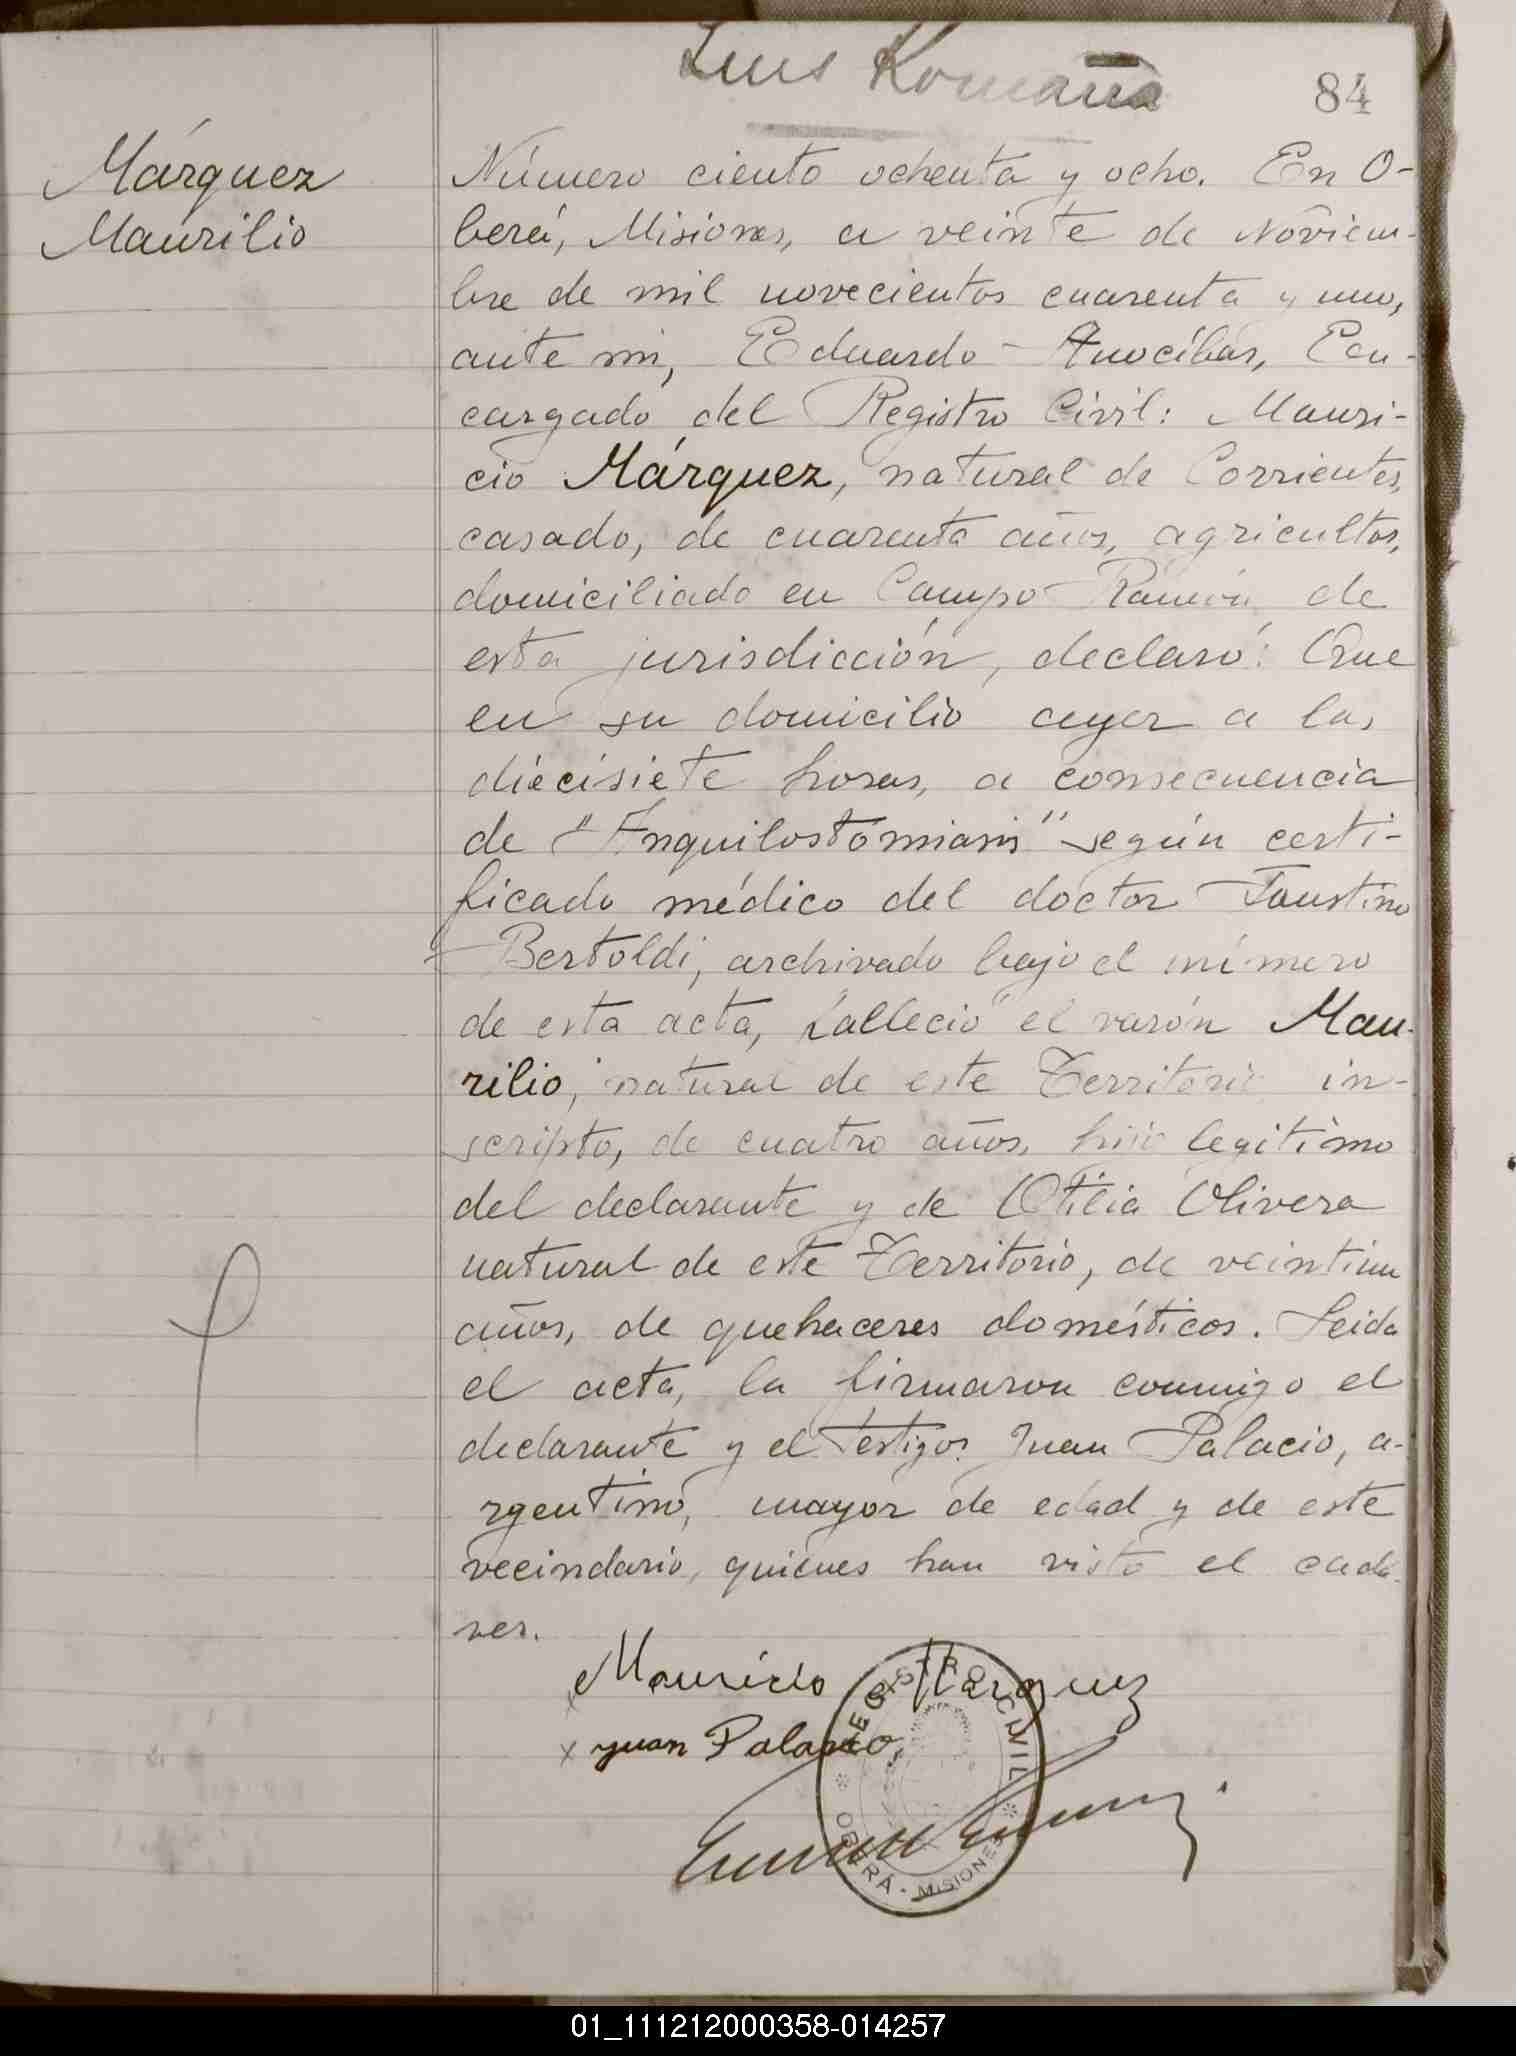 Luis Romaña
84
Márquez
Maurilio
Número ciento ochenta y ocho. En O-
berá, Misiones, a veinte de Noviem-
bre de mil novecientos cuarenta y uno,
ante mi, Eduardo Anocíbar, En-
cargado del Registro Civil: Mauri-
cio Márquez, natural de Corrientes,
casado, de cuarenta años, agricultor,
domiciliado en Campo Ramón, de
esta jurisdicción, declaró: Que
en su domicilio ayer a las
diecisiete horas, a consecuencia
de "Anquilostomiasis" según certi-
ficado médico del doctor Faustino
Bertoldi, archivado bajo el número
de esta acta, falleció el varón Mau-
rilio, natural de este Territorio in-
scripto, de cuatro años, hijo legítimo
del declarante y de Otilia Olivera
natural de este Territorio, de veintiun
años, de quehaceres domésticos. Leida
el acta, la firmaron conmigo el
declarante y el testigo: Juan Palacio, a-
rgentino, mayor de edad y de este
vecindario, quienes han visto el cadá-
ver.
Mauricio Marquez
x Juan Palacio
REGISTRO CIVIL
OBERÁ - MISIONES
01_111212000358-014257